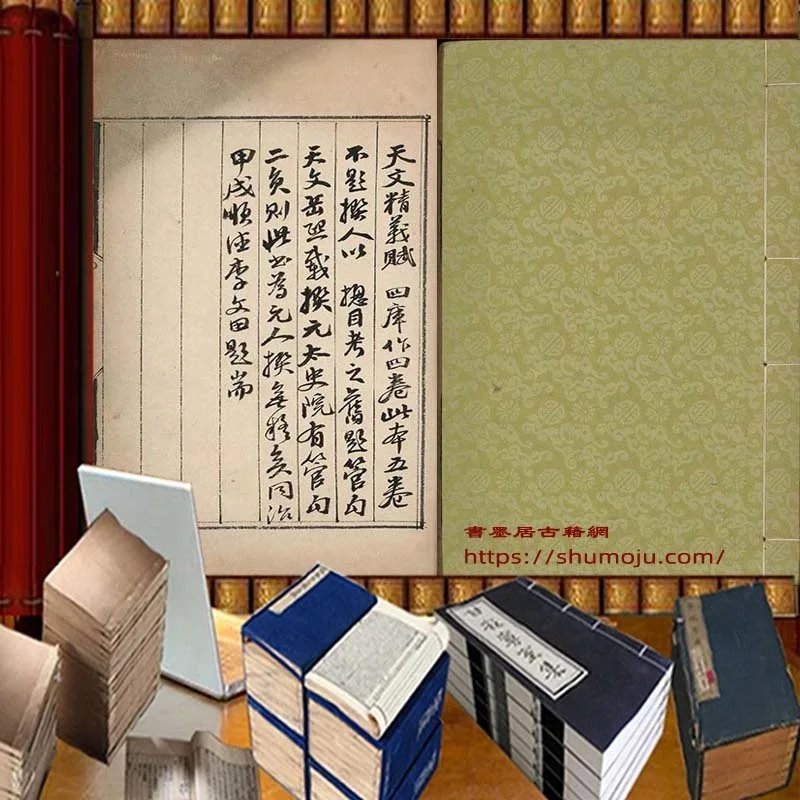 天文精義賦 四庫作四卷此本五卷
不題撰人以 揔目考之舊題管勾
天文岳熙載撰元太史院有管勾
二員則此書為元人撰無疑矣同治
甲戌順德李文田題耑
書墨居古籍網
https://shumoju.com/